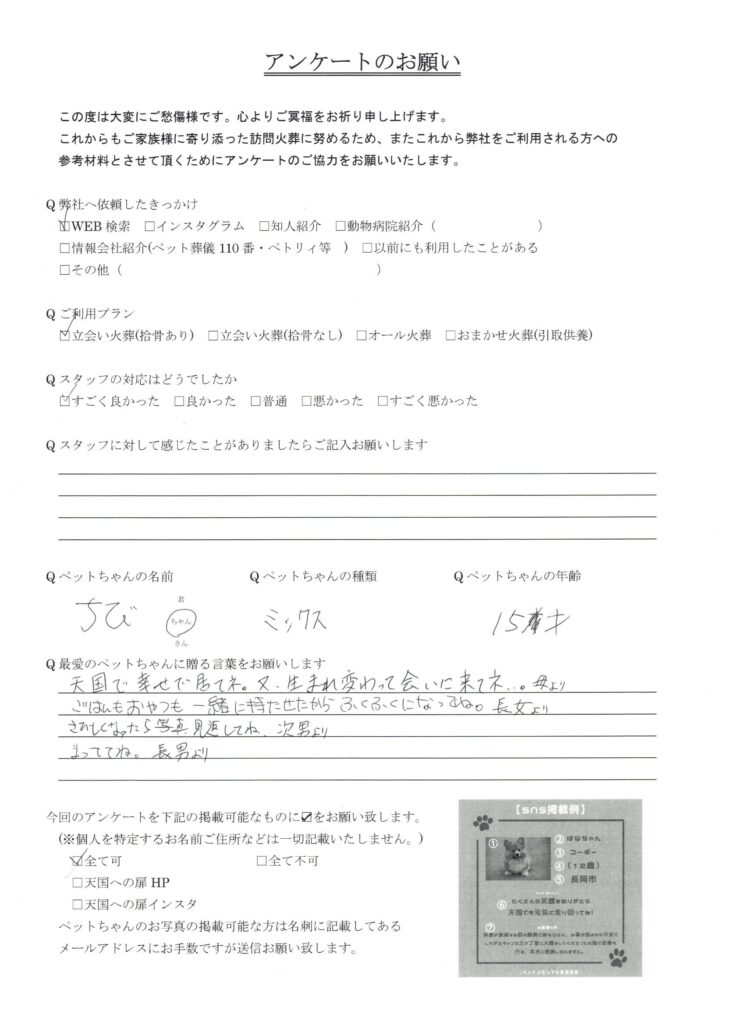 アンケートのお願い
この度は大変にご愁傷様です。心よりご冥福をお祈り申し上げます。
これからもご家族様に寄り添った訪問火葬に努めるため、またこれから弊社をご利用される方への
参考材料とさせて頂くためにアンケートのご協力をお願いいたします。
Q 弊社へ依頼したきっかけ
☑WEB 検索 □インスタグラム □知人紹介 □動物病院紹介（ ）
□情報会社紹介(ペット葬儀 110 番・ペトリィ等 ) □以前にも利用したことがある
□その他（ ）
Q ご利用プラン
☑立会い火葬(拾骨あり) □立会い火葬(拾骨なし) □オール火葬 □おまかせ火葬(引取供養)
Q スタッフの対応はどうでしたか
☑すごく良かった □良かった □普通 □悪かった □すごく悪かった
Q スタッフに対して感じたことがありましたらご記入お願いします
Q ペットちゃんの名前 Q ペットちゃんの種類 Q ペットちゃんの年齢
君
ちび ちゃん ミックス 15才
さん
Q 最愛のペットちゃんに贈る言葉をお願いします
天国で幸せで居てネ。又、生まれ変わって会いに来てネ…。母より
ごはんもおやつも一緒に持たせたからふくふくになってね。長女より
さみしくなったら写真見返してね、次男より
まっててね。長男より
今回のアンケートを下記の掲載可能なものに☑をお願い致します。
(※個人を特定するお名前ご住所などは一切記載いたしません。)
☑全て可 □全て不可
□天国への扉 HP
□天国への扉インスタ
ペットちゃんのお写真の掲載可能な方は名刺に記載してある
メールアドレスにお手数ですが送信お願い致します。
【sns掲載例】
① ②はなちゃん
③コーギー
④（12歳）
⑤長岡市
⑥たくさんの笑顔をありがとう
天国でも元気に走り回ってね!
⑦